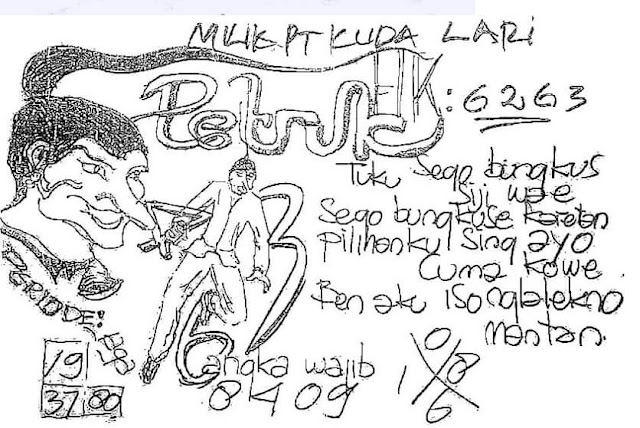 MILIK PT KUDA LARI
Petruk
EK: 6263
Tuku sego bungkus
siji wae
Sego bungkuse karetan
Pilihanku sing ayo
Cuma kowe
Ben aku iso nglalekno
mantan.
PERIODE:
19
37 80
angka wajib
8409
0
1 8
6